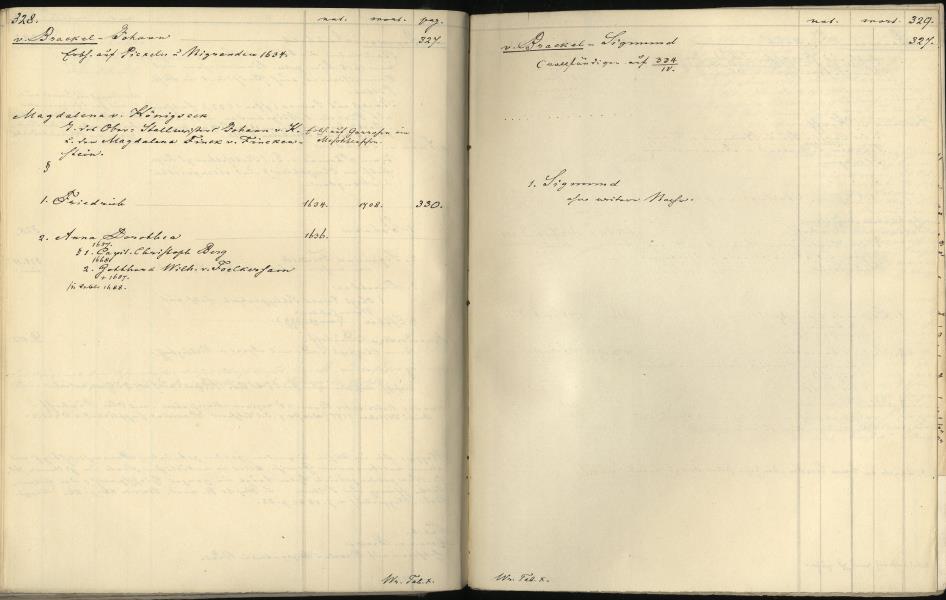 328.
nat. mort. pag.
v. Brackel - Johann 327.
Erbh. auf Pickeln u Nigranden 1634.
Magdalena v. Königseck
T. des Ober-Stallmeisters Johann v. K. Erbh. auf
u. der Magdalena Finck v. Fincken-
stein.
1. Friedrich 1634. 1708. 330.
2. Anna Dorothea 1636.
§ 1. Capit. Christoph Berg
2. Gotthard Wilh. v. Foelckersam
+ 1687.
1688.
Wr. Tab. X.
nat. mort. 329.
v. Brackel - Sigmund 327.
(vollständiger auf 334/IV.
1. Sigmund
ohne weitere Nachr.
Wr. Tab. X.